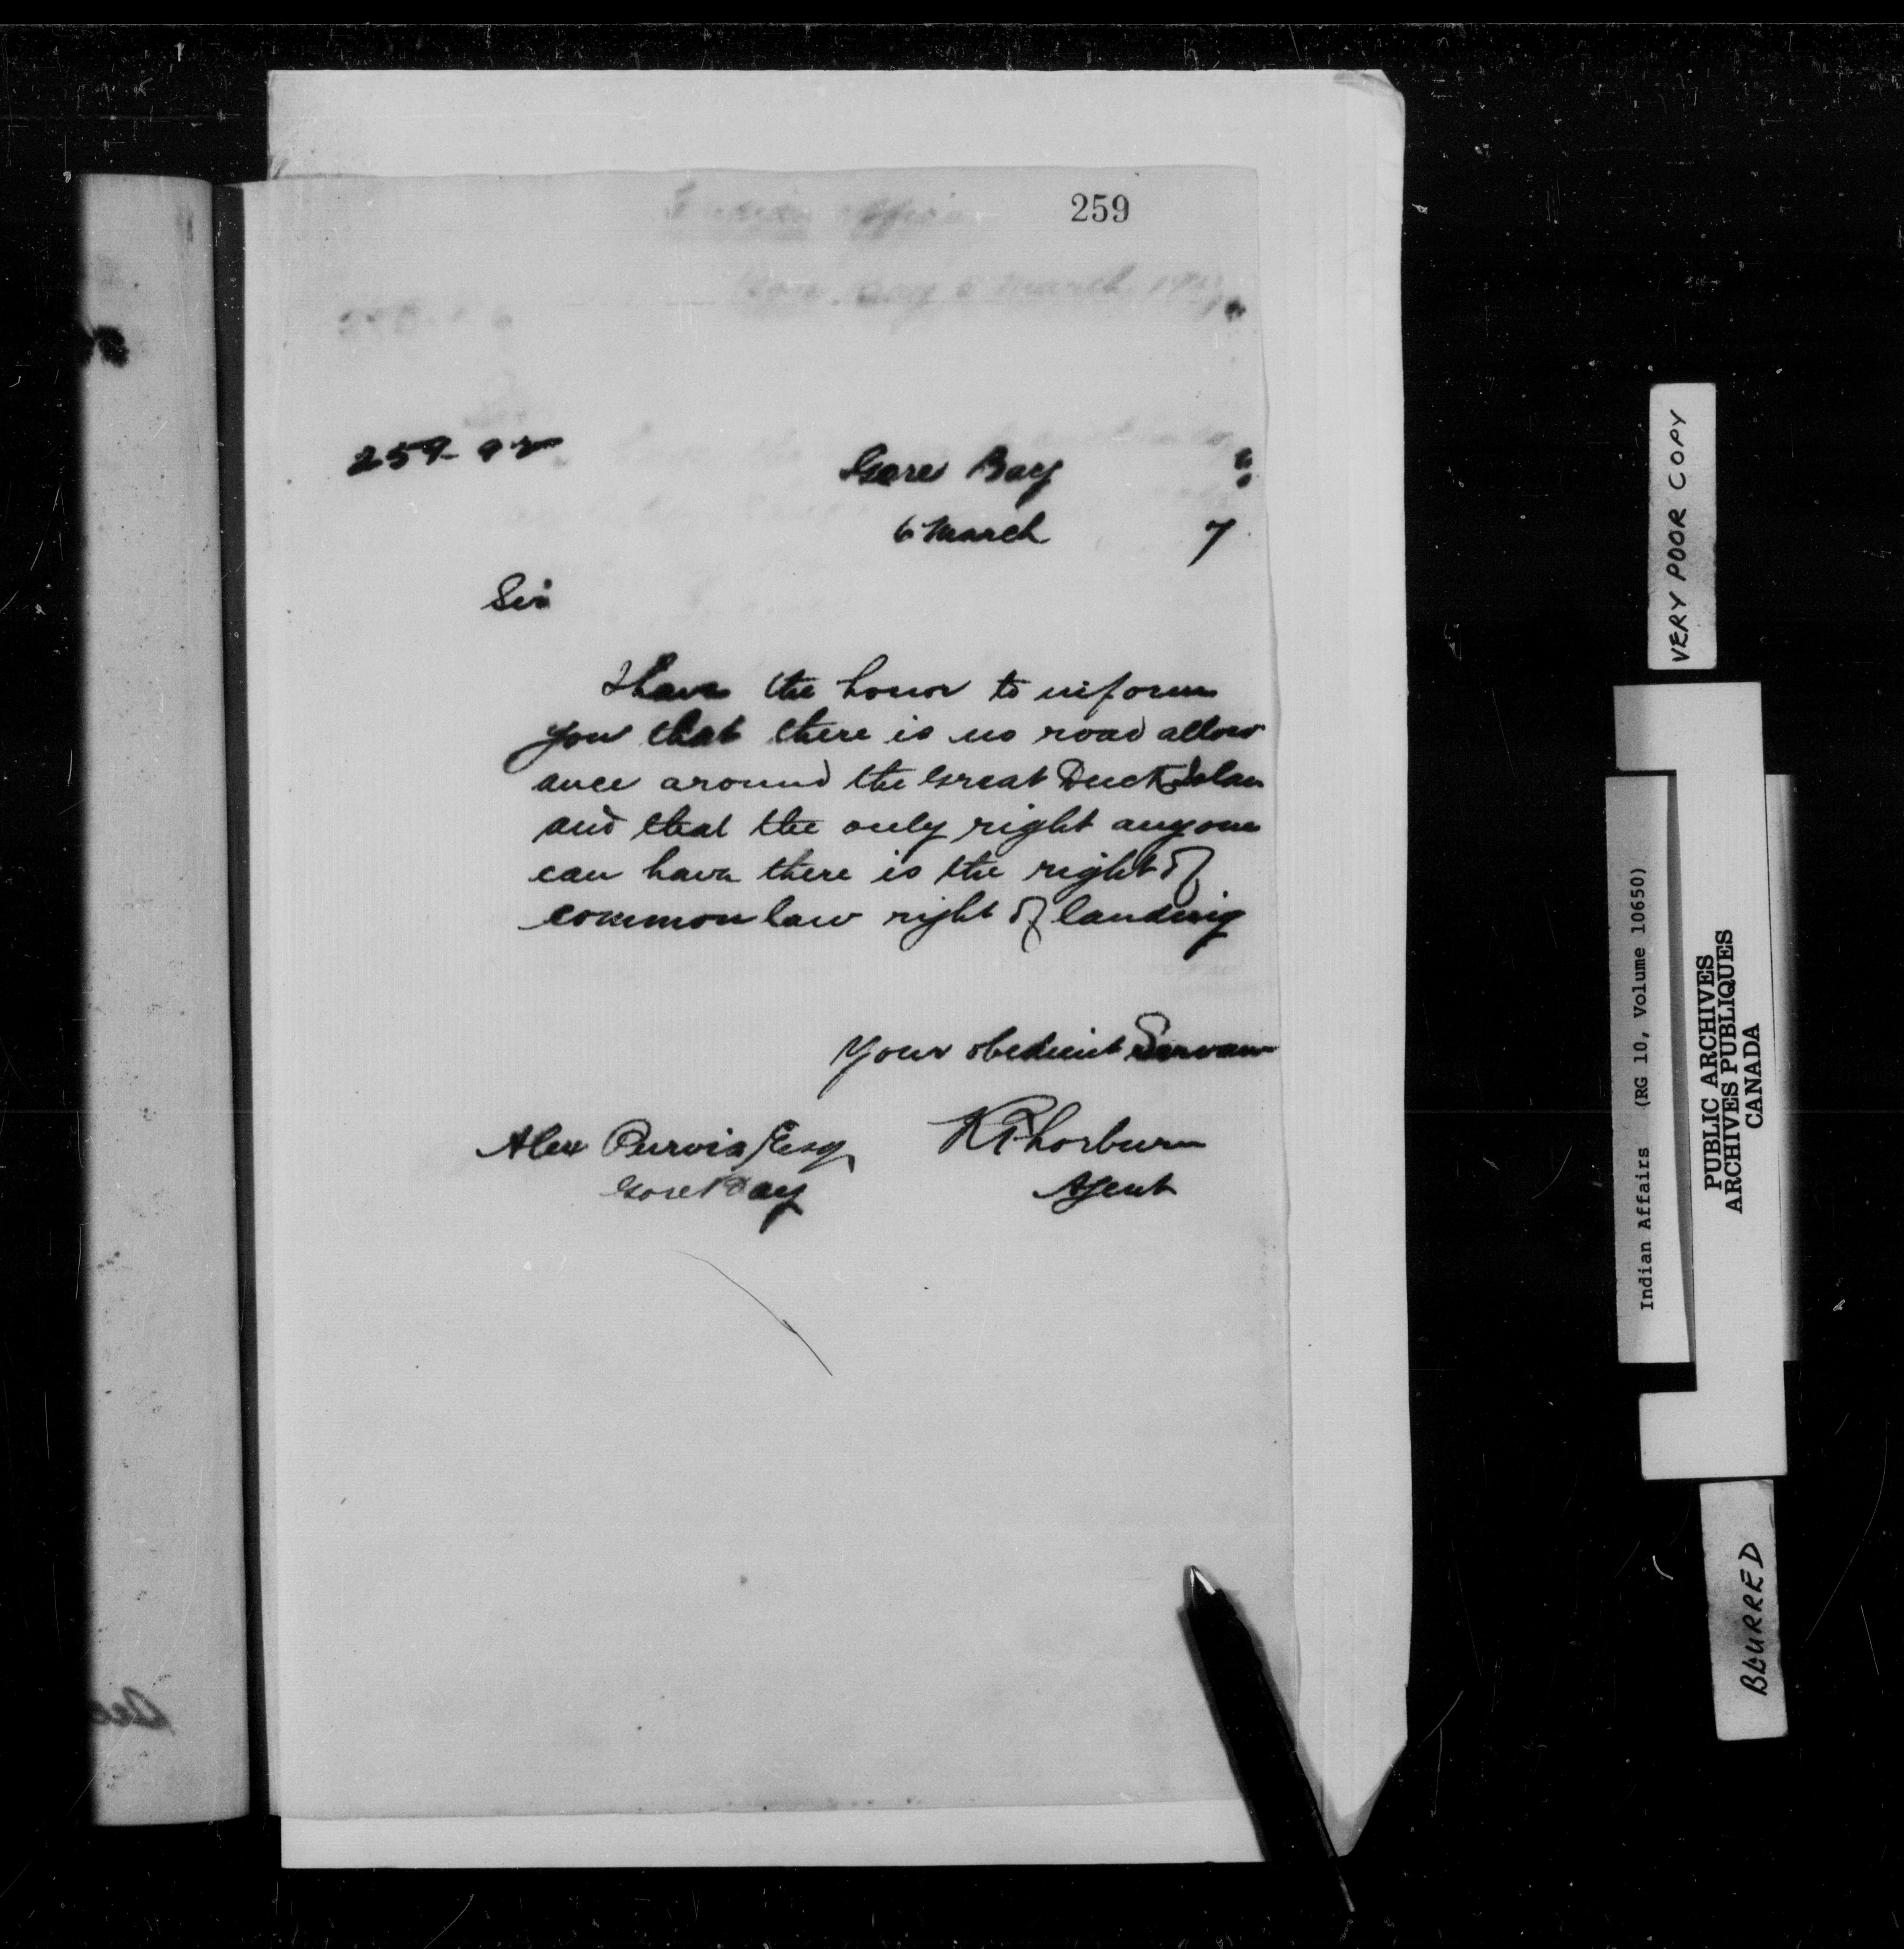 259
Gore Bay
6 March 7
Sir
I have the honor to inform
you that there is no road allow
ance around the Great Duck Islan
and that the only right anyone
can have there is the right of
common law right of landing
Your obedient Servan
Alex Purvis Esq RThorburn
Gore Bay Agent
VERY POOR COPY
Indian Affairs (RG 10, Volume 10650)
PUBLIC ARCHIVES
ARCHIVES PUBLIQUES
CANADA
BLURRED